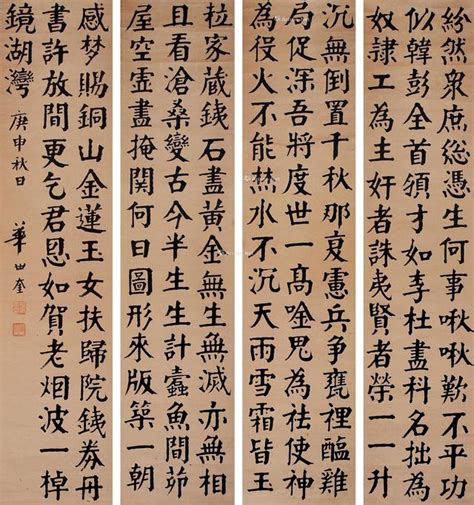 紛然衆庶總憑生何事啾啾歎不平功
似韓彭全首領才如李杜盡科名拙為
奴隷工為主奸者誅夷賢者榮一一升
沉無倒置千秋那憲兵爭甕裡醯雞
局促深吾將度世一高唫鬼為祛使神
為役火不能焚水不沉天雨雪霜皆玉
粒家藏銕石盡黃金無生無滅亦無相
且看滄桑變古今半生生計蠹魚間茆
屋空虛晝掩關何日圖形來版築一朝
感梦賜銅山金蓮玉女扶歸院銕券丹
書許放間更乞君恩如賀老烟波一棹
鏡湖灣 庚申秋日 華世奎